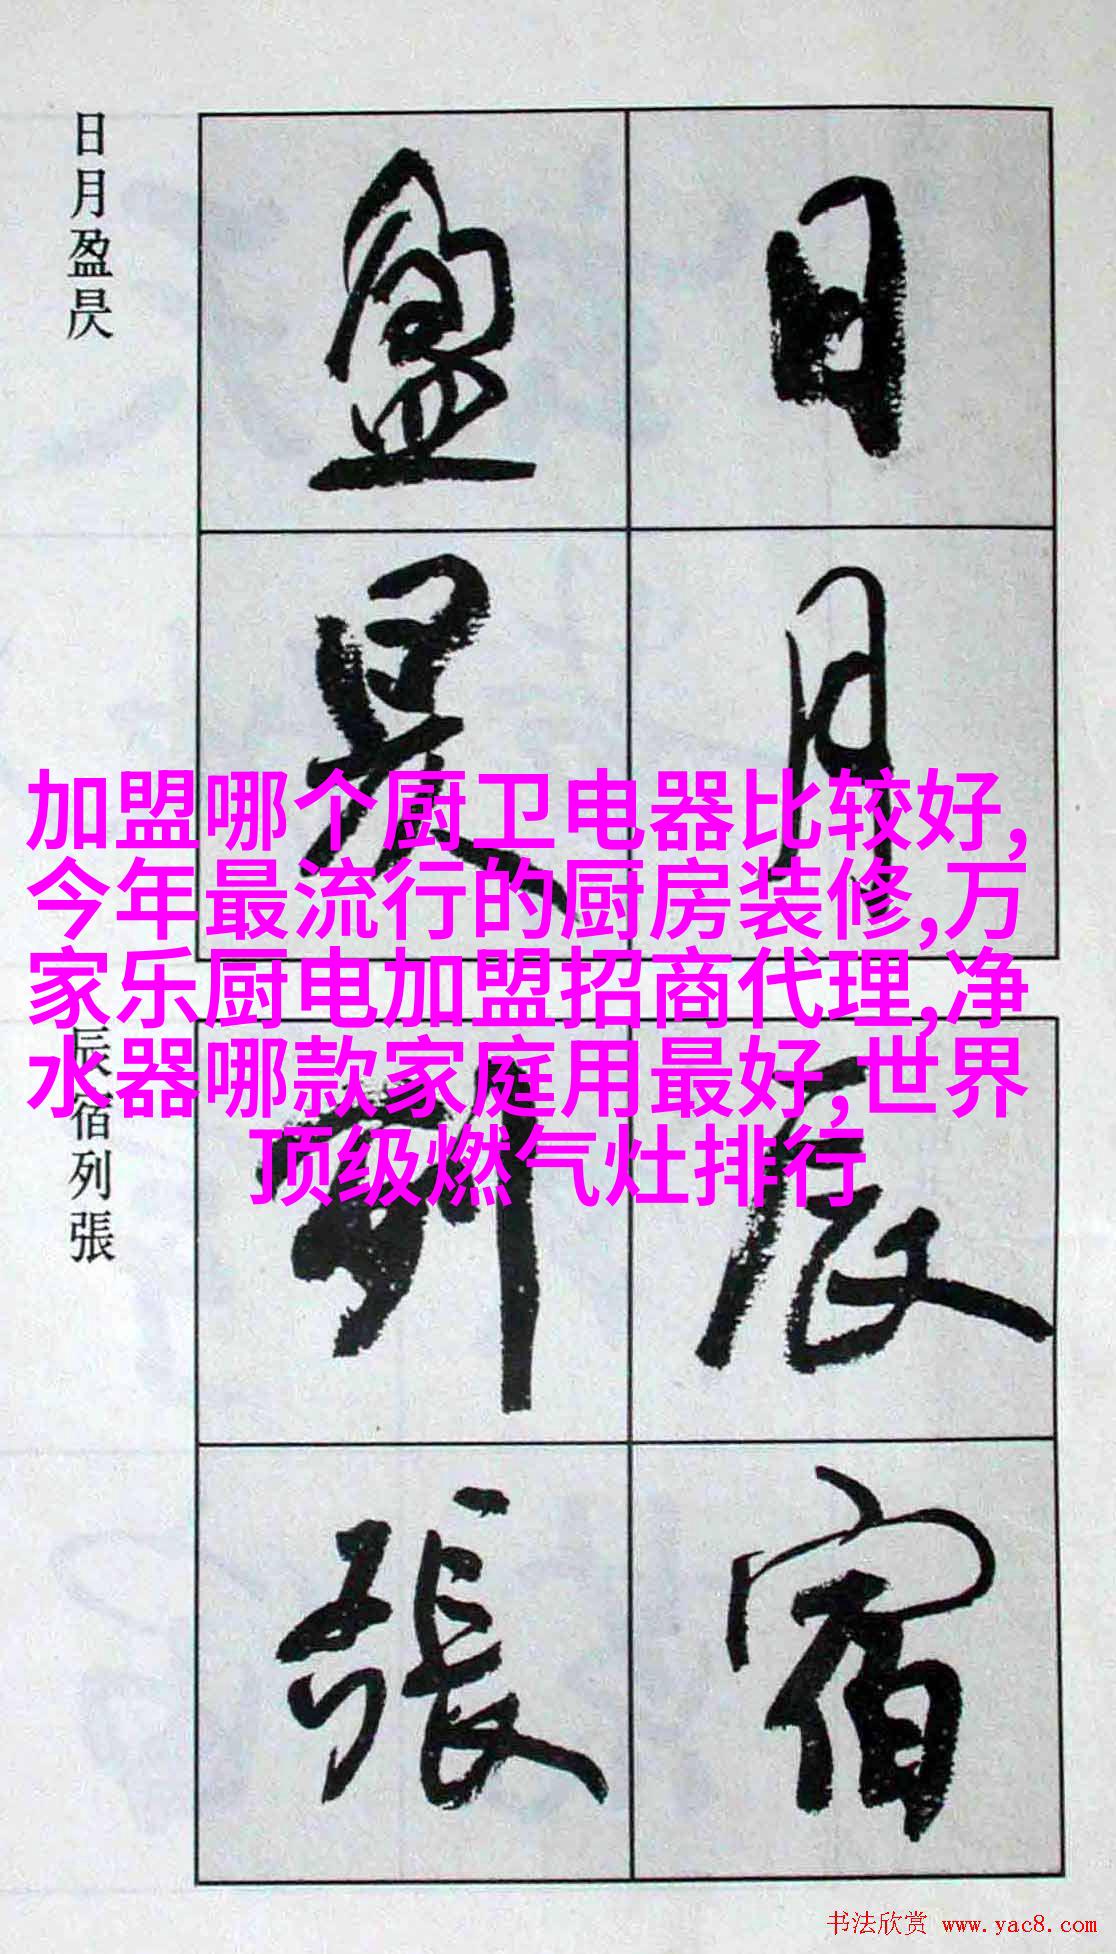 日月盈昃
日
月
盈
昃
加盟哪个厨卫电器比较好,
今年最流行的厨房装修,万
家乐厨电加盟招商代理,净
水器哪款家庭用最好,世界
顶级燃气灶排行
辰宿列張
辰
宿
列
張
书法欣赏 www.yac8.com